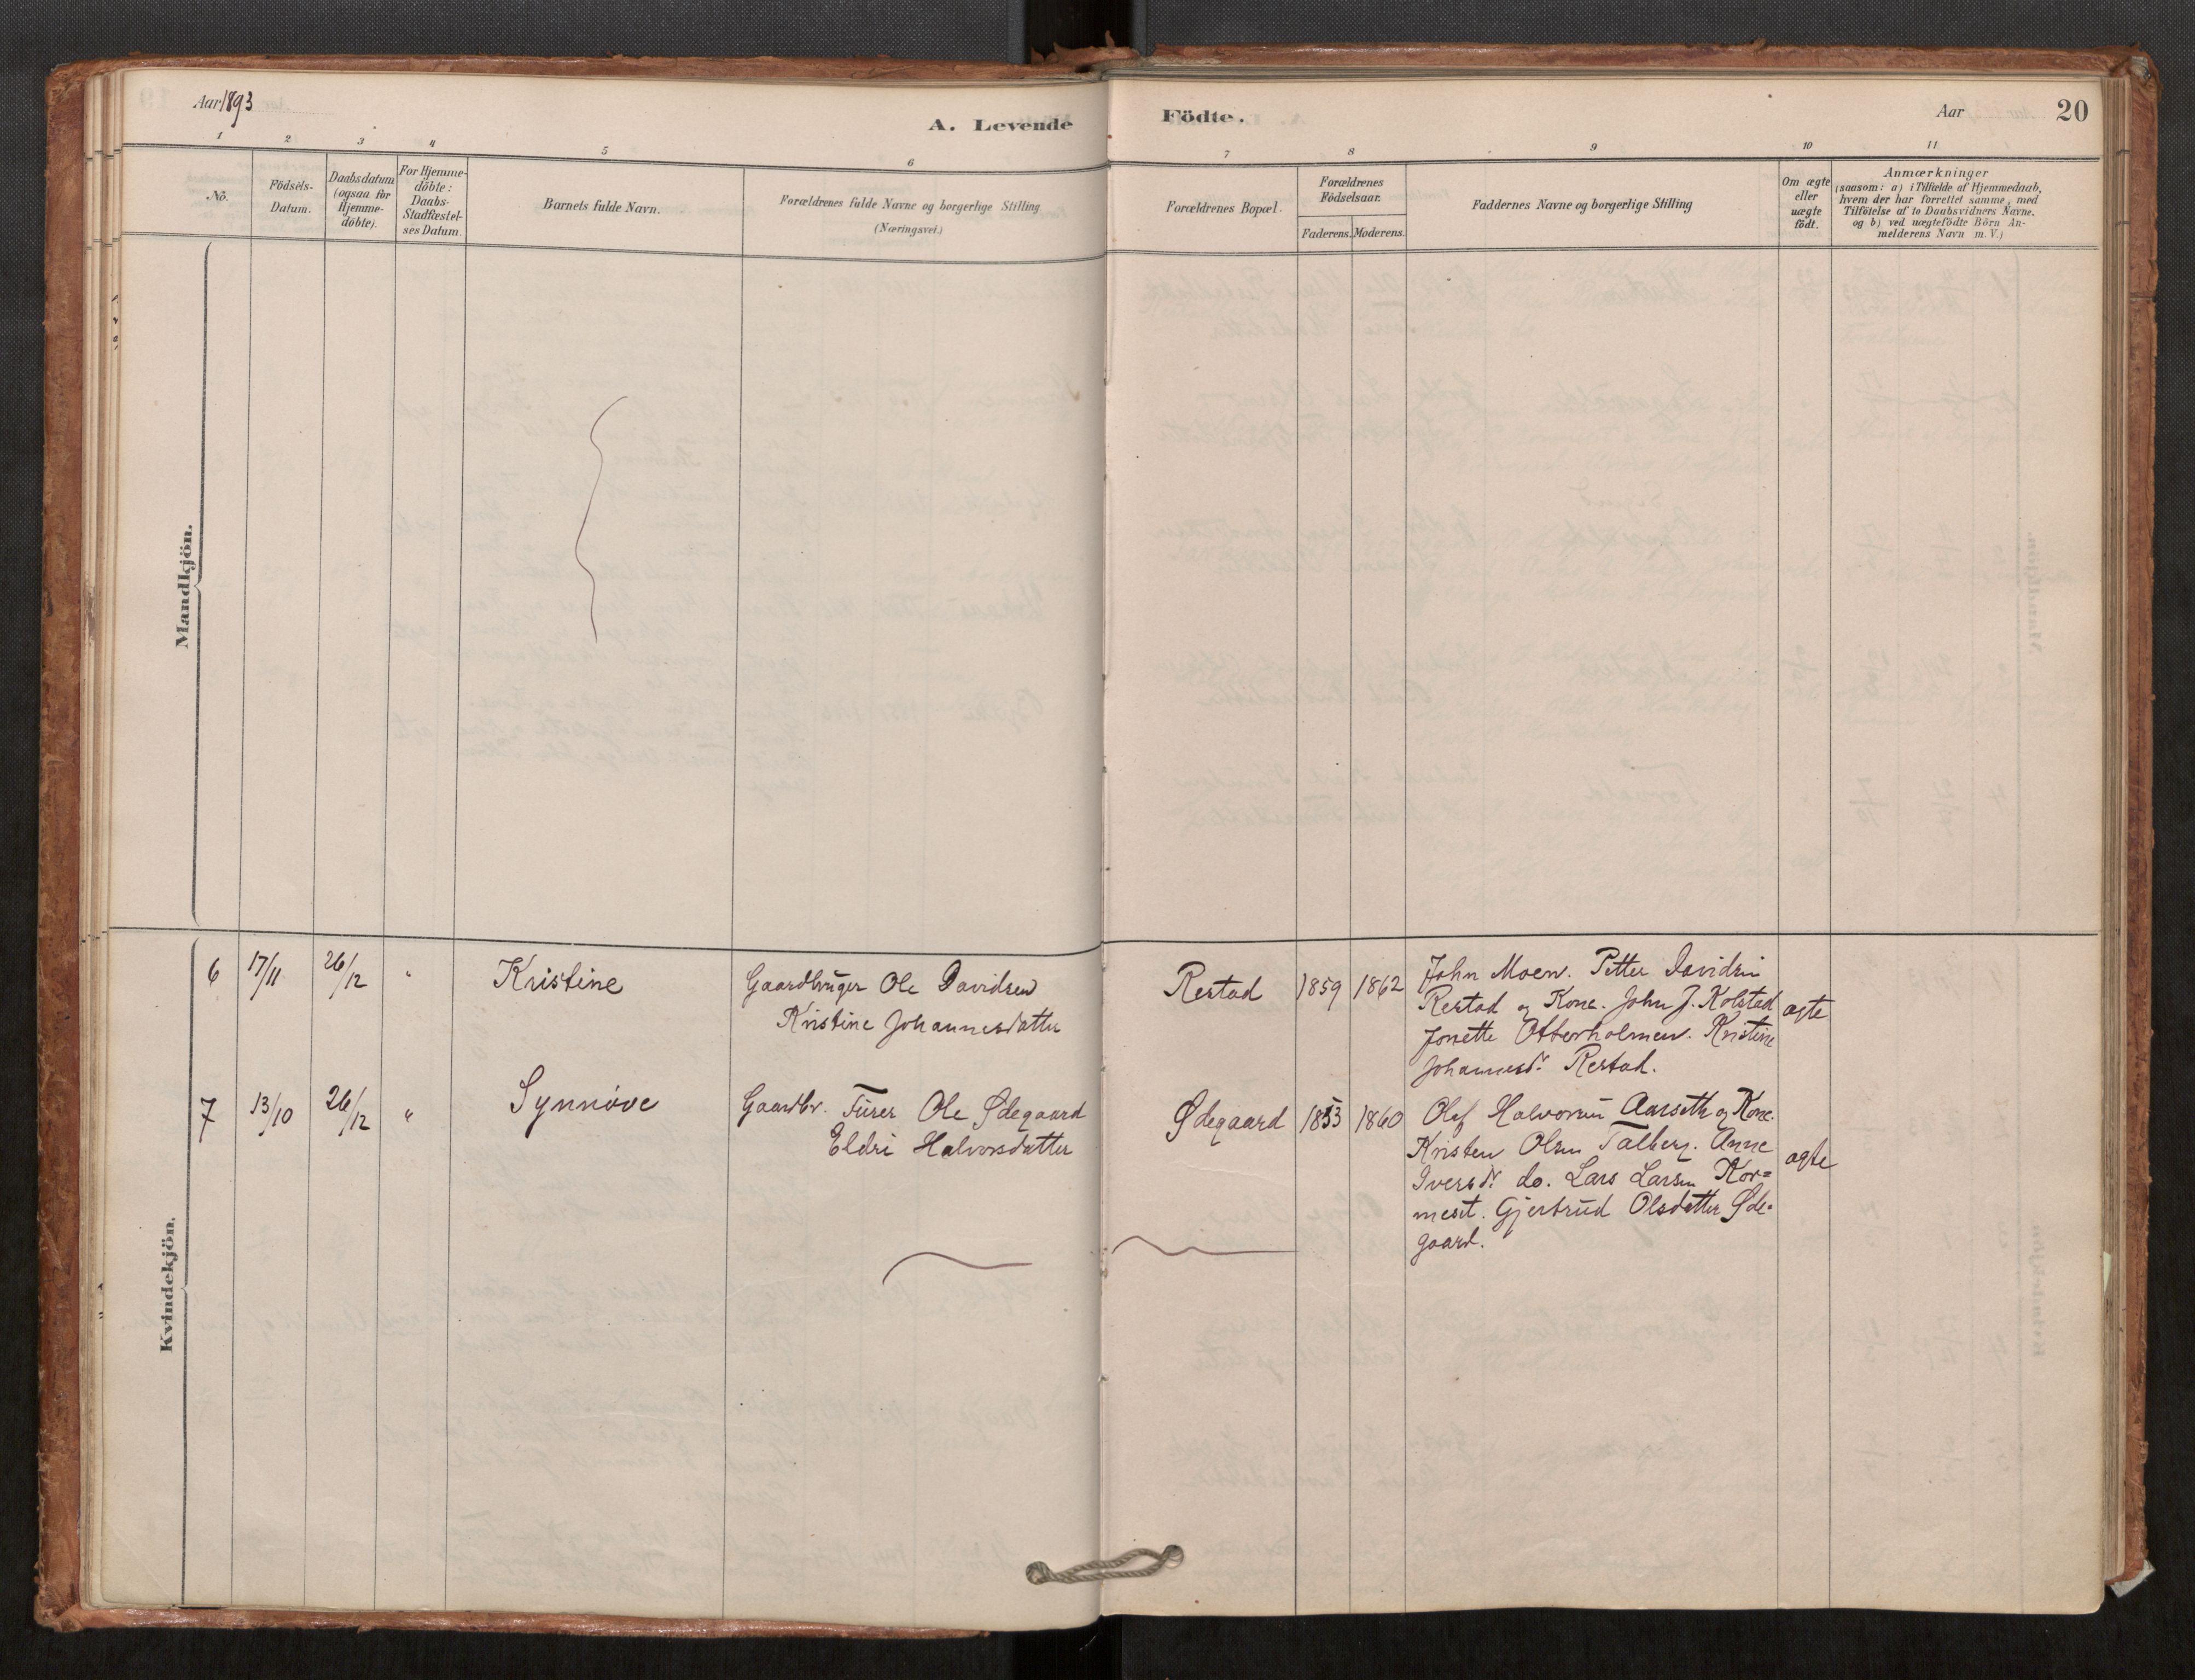 Aar 1893
A. Levende Födte.
Aar
20
1 2 3 4 5 6 7 8 9 10 11
No.
Födsels-
Datum.
Daabsdatum
(ogsaa for
Hjemme-
döbte).
For Hjemme-
döbte:
Daabs-
Stadfæstel-
ses Datum.
Barnets fulde Navn.
Forældrenes fulde Navne og borgerlige Stilling
(Næringsvei.)
Forældrenes Bopæl.
Forældrenes
Födselsaar.
Faderens. Moderens.
Faddernes Navne og borgerlige Stilling
Om ægte
eller
uægte
födt.
Anmærkninger
(saasom: a) i Tilfælde af Hjemmedaab,
hvem der har forrettet samme, med
Tilföielse af to Daabsvidners Navne.
og b) ved uægtefödte Börn An-
melderens Navn m. V.)
Mandkjön.
Kvindekjön.
6 17/11 26/12 " Kristine
Gaardbruger Ole Davidsen
Kristine Johannesdatter
Restad 1859 1862
John Moen. Petter Davidsen
Restad og Kone. John J. Kolstad
Jonette Otterholmen. Kristine
Johannesd. Restad.
ægte
7 13/10 26/12 " Synnøve
Gaardbr. Furer Ole Ødegaard
Eldri Halvorsdatter
Ødegaard 1853 1860
Olaf Halvorsen Aarseth og Kone.
Kristen Olsen Talberg. Anne
Iversd. do. Lars Larsen Kor=
meset. Gjertrud Olsdatter Øde-
gaard.
ægte